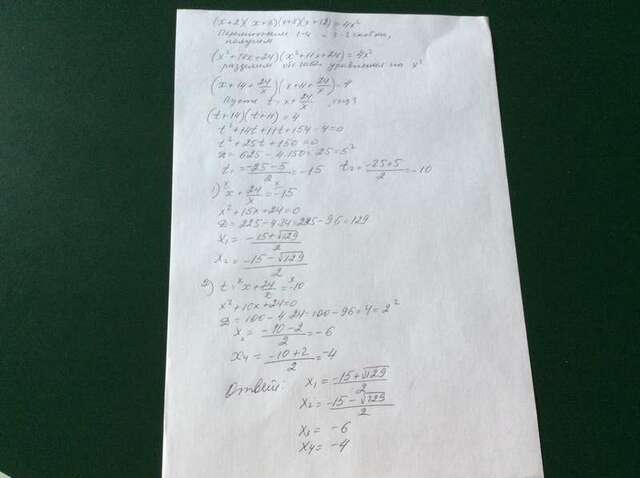 (x+2)(x+3)(x+8)(x+12)=4x²
Перемножим 1-4 и 2-3 скобки,
получим
(x²+14x+24)(x²+11x+24)=4x²
разделим обе части уравнения на x²
(x+14+24/x)(x+11+24/x)=4
Пусть t=x+24/x, тогда
(t+14)(t+11)=4
t²+14t+11t+154-4=0
t²+25t+150=0
D=625-4·150=25=5²
t₁=(-25-5)/2=-15 t₂=(-25+5)/2=-10
1) x+24/x=-15
x²+15x+24=0
D=225-4·24=225-96=129
x₁=(-15+√129)/2
x₂=(-15-√129)/2
2) t=x+24/x=-10
x²+10x+24=0
D=100-4·24=100-96=4=2²
x₃=(-10-2)/2=-6
x₄=(-10+2)/2=-4
Ответ: x₁=(-15+√129)/2
x₂=(-15-√129)/2
x₃=-6
x₄=-4